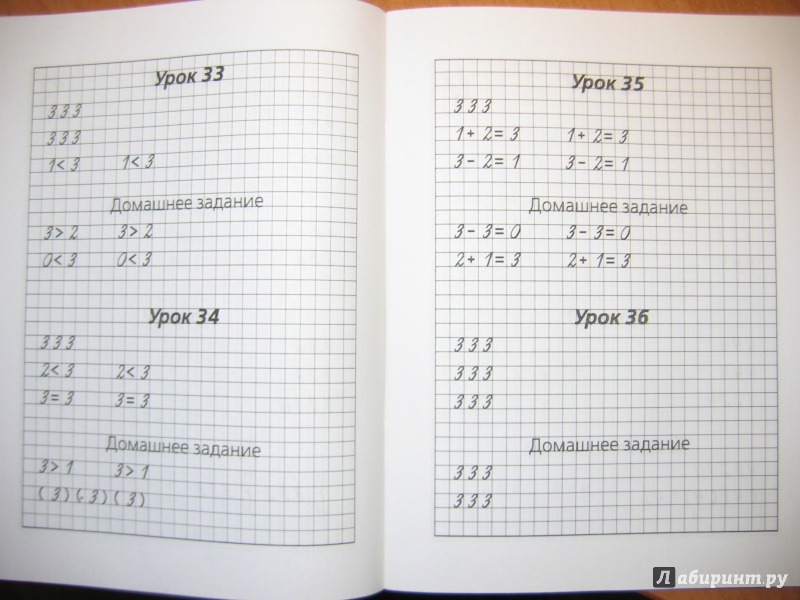 Урок 33
3 3 3
3 3 3
1 < 3 1 < 3
Домашнее задание
3 > 2 3 > 2
0 < 3 0 < 3
Урок 34
3 3 3
2 < 3 2 < 3
3 = 3 3 = 3
Домашнее задание
3 > 1 3 > 1
( 3 ) ( 3 ) ( 3 )
Урок 35
3 3 3
1 + 2 = 3 1 + 2 = 3
3 - 2 = 1 3 - 2 = 1
Домашнее задание
3 - 3 = 0 3 - 3 = 0
2 + 1 = 3 2 + 1 = 3
Урок 36
3 3 3
3 3 3
3 3 3
Домашнее задание
3 3 3
3 3 3
Лабиринт.ру